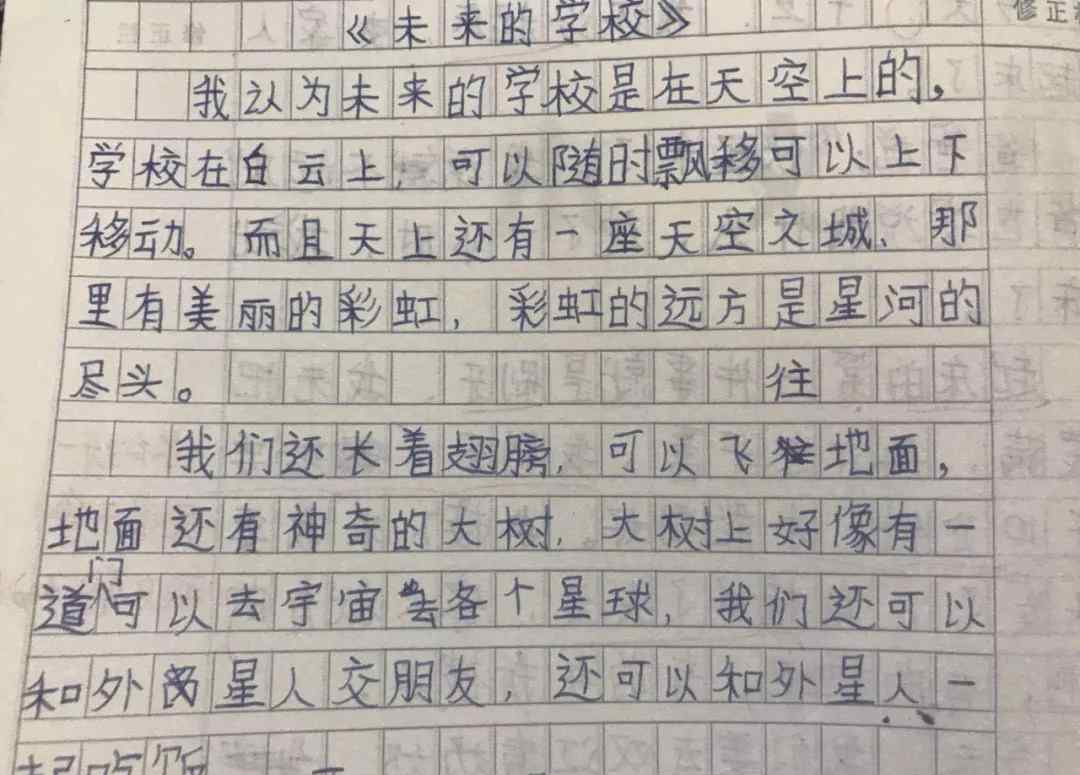 《未来的学校》
我认为未来的学校是在天空上的，
学校在白云上，可以随时飘移可以上下
移动。而且天上还有一座天空之城，那
里有美丽的彩虹，彩虹的远方是星河的
尽头。
往
我们还长着翅膀，可以飞地面，
地面还有神奇的大树，大树上好像有一
道门可以去宇宙去各个星球，我们还可以
和外星人交朋友，还可以和外星人一
起吃饭